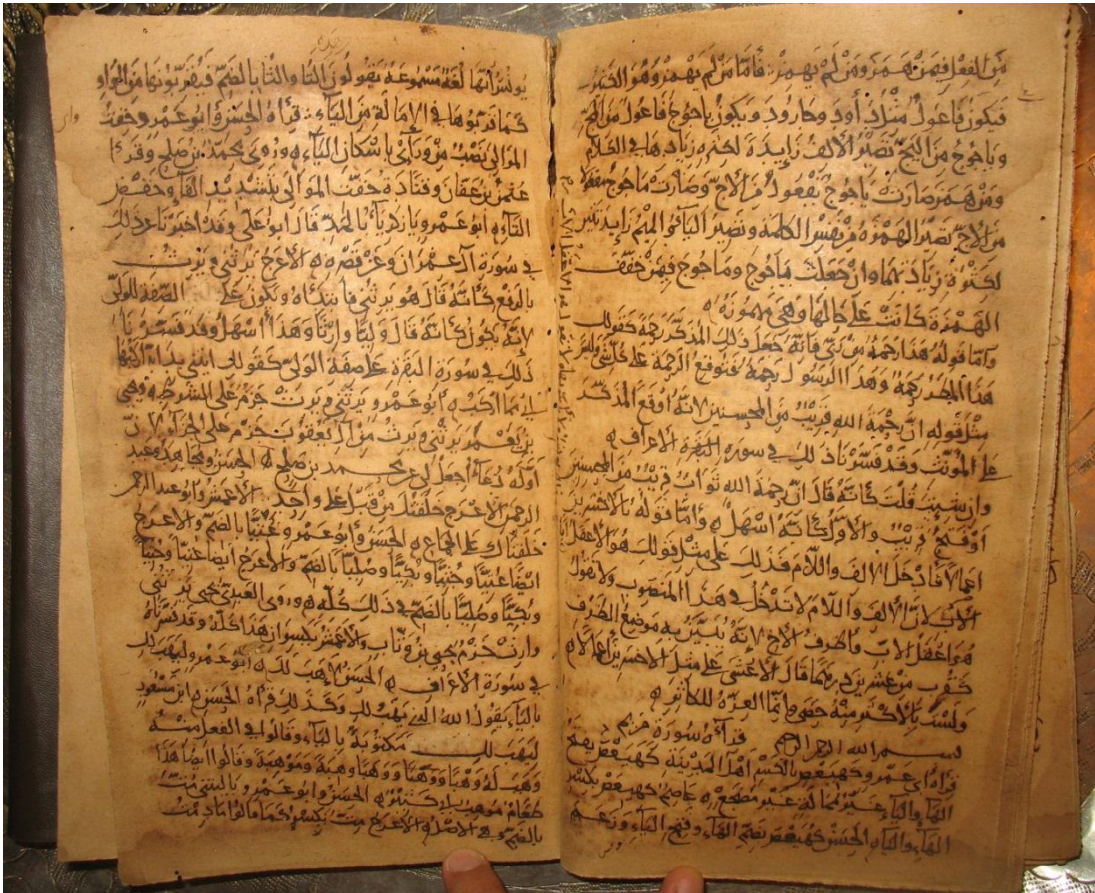 من الفعل فيمن همز ومن لم يهمز فأما من لم يهمز وهو
فيكون فاعول مثل داود وجارود ويكون ياجوج فاعول من اليج
وياجوج من اليج تصير الألف زايدة لكثرة زيادتها في الكلام
ومن همز صارت ياجوج يفعول من الأج وصارت ماجوج مفعولا
من الأج تصير الهمزة من نفس الكلمة وتصير الياء والميم زايدتين
لكثرة زيادتهما وان جعلت ياجوج وماجوج فيمن خفف
الهمزة كانت على حالها وهي مهموزة
وأما قوله هذا رحمة من ربي فانه جعل ذلك المذكر رحمة كقولك
هذا المطر رحمة وهذا الرسول رحمة فتوقع الرحمة على كل شي وليس
مثل قوله ان رحمة الله قريب من المحسنين لانه أوقع المذكر
على المؤنث وقد فسرنا ذلك في سورة البقرة الأعراف
وان شيت قلت كأنه قال ان رحمة الله ثواب قريب من المحسنين
أو شيء قريب والأول كأنه أسهل وأما قوله بالاخسرين
اعمالا فادخل الالف واللام فذلك على مثل قولك هو الاعقل
الأب لان الألف واللام لا تدخل في هذا المنصوب ولا تقول
هو اعقل الأب واظرف الأخ لانه يسير به موضع الظرف
كقرب من عشرين درهما قال الاعشى على مثل الاخسرين اعمالا
ولست بالأكثر منهم حصى وإنما العزة للكاثر
بسم الله الرحمن الرحيم قراءة سورة مريم
قراءة أبي عمرو كهيعص بالكسر أهل المدينة كهيعص بفتح
الهاء والياء غير ممالة غير مضجع عاصم كهيعص بكسر
الهاء والياء الحسن كهيعص بضم الهاء وفتح الياء وزعم
يونس أنها لغة مسموعة يقولون التا والثا بالضم فيقربونها من الواو
كما قربوها في الإمالة من الياء قراءة الحسن وأبو عمرو وخفت
الموالي نصب من ورآئي باسكان الياء وروي محمد بن صلح وقرأ
عثمن بن عفان وقتادة خفت الموالي بتشديد الفاء وخفض
التاء أبو عمرو يا زكرياء بالمد قال ابو علي وقد اخبرنا عن ذلك
في سورة آل عمران وعن قصره الأعرج يرثني ويرث
بالرفع كأنه قال هو يرثني فابتداه ويكون على الصفة للولي
لانه يجوز كأنه قال وليا وارثا وهذا أسهل وقد فسرنا
ذلك في سورة البقرة على صفة الولي كقولك
أبو عمرو يرثني ويرث جزم على الشرط
بن يعمر يرثني ويرث من آل يعقوب جزم على الجزاء لان
أوله دعاء اجعل لي محمد بن صلح الحسن ومجاهد وعبد
الرحمن الاعرج خلقتك من قبل على واحد الأعمش وابو عبد الرحمن
خلقناك على الجماع الحسن وأبو عمرو عتيا بالضم والأعرج
ايضا عتيا وجثيا وبكيا وصليا بالضم والأعرج أيضا عتيا وجثيا
وبكيا وصليا بالضم في ذلك كله وروى العبدي يحيى يرثني
وارث جزم يحيى بن وثاب والأعمش بكسران هذا كله وقد فسرناه
في سورة الأعراف الحسن لأهب لك أبو عمرو ليهب لك
بالياء يقول الله الذي يهب لك وكذلك قراءة الحسن ابن مسعود
ليهب لك مكتوبة بالياء وقالوا في الفعل منه
وهب له وهبا ووهبا ووهبا وهبة وموهبة وقالوا أيضا هذا
طعام موهب الحسن وابو عمرو يا ليتني مت
بالضم وهي الاصل والأعرج مت بكسر كما قالوا مات